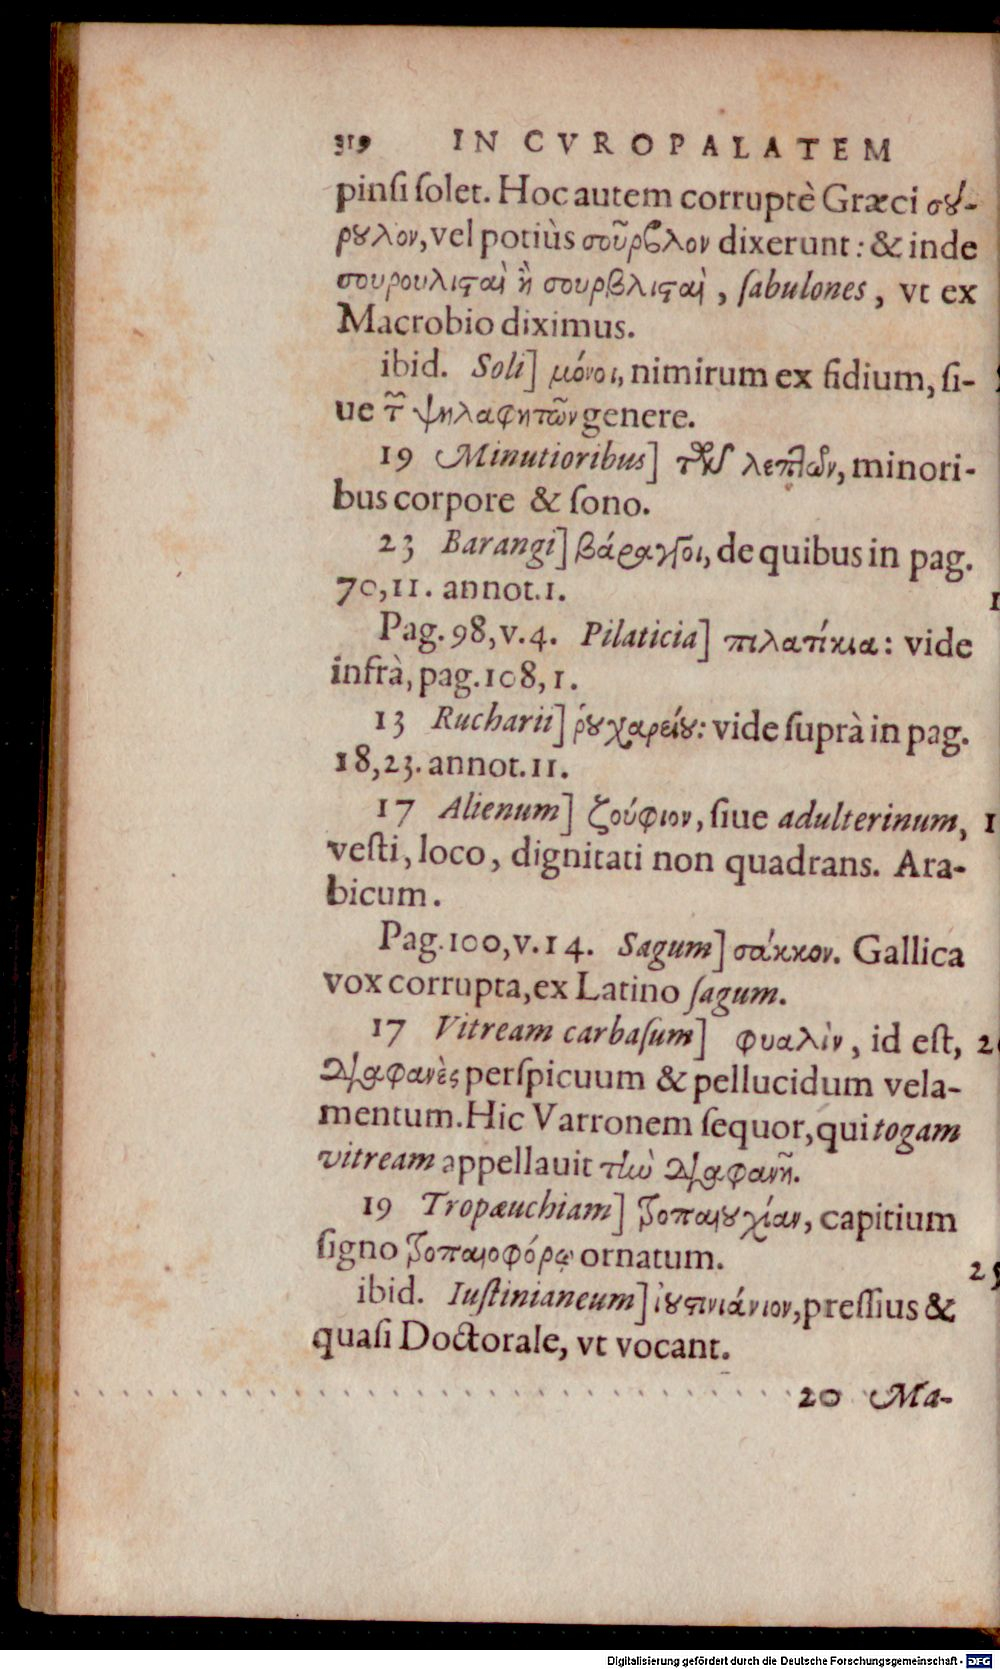 319 IN CVROPALATEM
pinſi ſolet. Hoc autem corruptè Græci σού-
ρουλον, vel potiùs σοῦρβλον dixerunt: & inde
σουρουλισταὶ ἢ σουρβλισταὶ, ſabulones, vt ex
Macrobio diximus.
ibid. Soli] μόνοι, nimirum ex fidium, ſi-
ue τῶν ψηλαφητῶν genere.
19 Minutioribus] τοῖς λεπτοῖς, minori-
bus corpore & ſono.
23 Barangi] βάραγγοι, de quibus in pag.
70, 11. annot. 1.
Pag. 98, v. 4. Pilaticia] πιλατίκια: vide
infrà, pag. 108, 1.
13 Rucharii] ῥουχαρείου: vide ſuprà in pag.
18, 23. annot. 11.
17 Alienum] ζούφιον, ſiue adulterinum,
veſti, loco, dignitati non quadrans. Ara-
bicum.
Pag. 100, v. 14. Sagum] σάκκον. Gallica
vox corrupta, ex Latino ſagum.
17 Vitream carbaſum] φυαλὶν, id eſt,
διαφανὲς perſpicuum & pellucidum vela-
mentum. Hic Varronem ſequor, qui togam
vitream appellauit τὴν διαφανῆ.
19 Tropæuchiam] τροπαιουχίαν, capitium
ſigno τροπαιοφόρῳ ornatum.
ibid. Iuſtinianeum] ἰουστινιάνιον, preſſius &
quaſi Doctorale, vt vocant.
20 Ma-
Digitalisierung gefördert durch die Deutsche Forschungsgemeinschaft - DFG